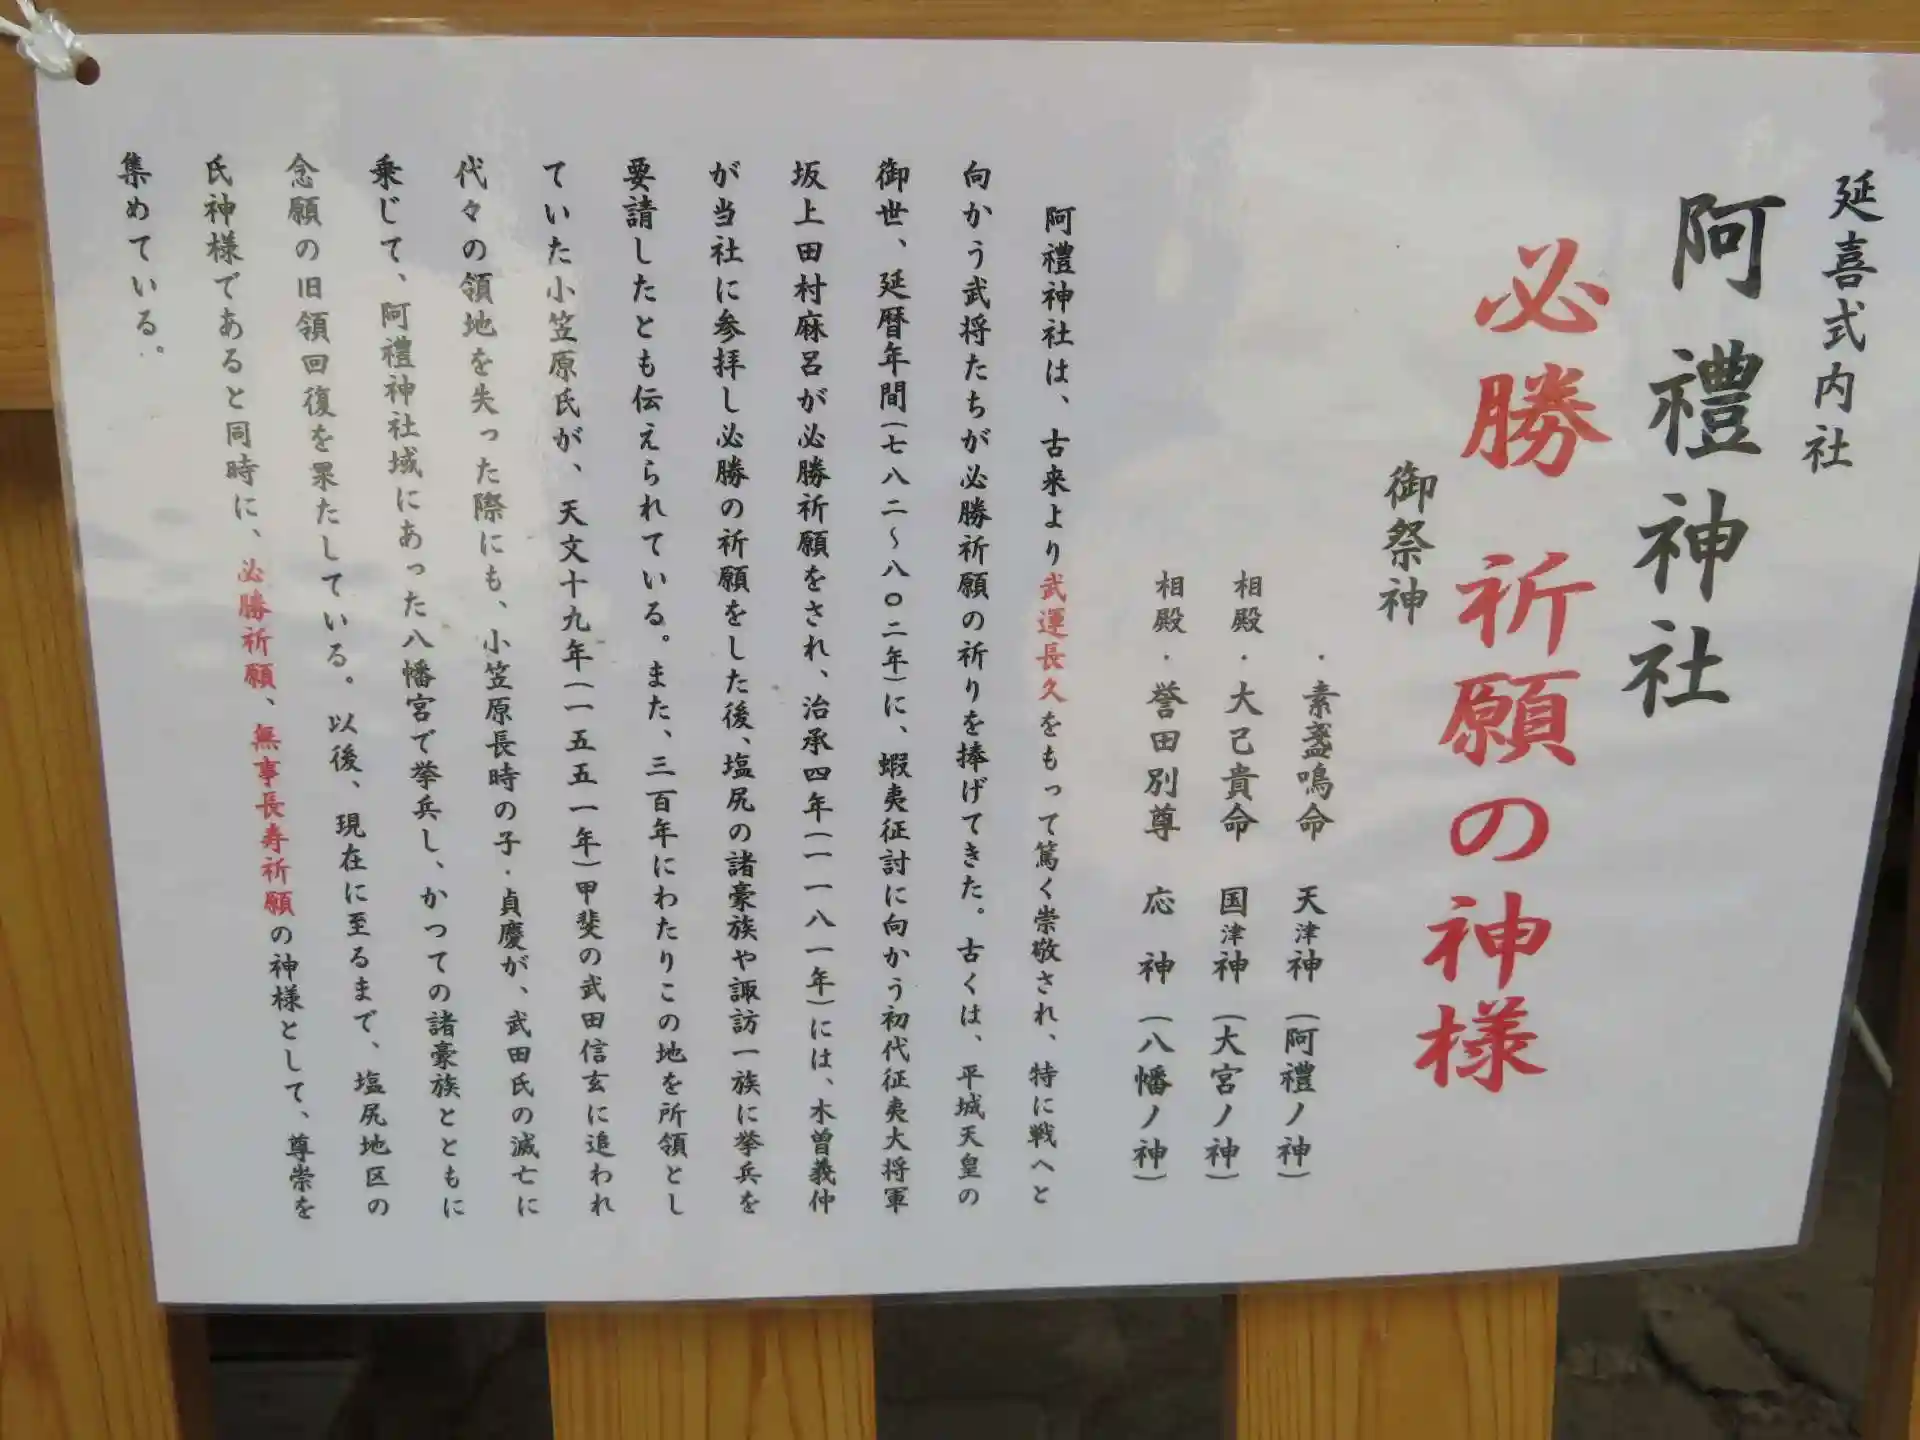 延喜式内社
阿禮神社
必勝 祈願の神様
御祭神
・素盞鳴命 天津神(阿禮ノ神)
相殿・大己貴命 国津神(大宮ノ神)
相殿・誉田別尊 応 神(八幡ノ神)
阿禮神社は、古来より武運長久をもって篤く崇敬され、特に戦へと
向かう武将たちが必勝祈願の祈りを捧げてきた。古くは、平城天皇の
御世、延暦年間(七八二~八〇二年)に、蝦夷征討に向かう初代征夷大将軍
坂上田村麻呂が必勝祈願をされ、治承四年(一一八一年)には、木曽義仲
が当社に参拝し必勝の祈願をした後、塩尻の諸豪族や諏訪一族に挙兵を
要請したとも伝えられている。また、三百年にわたりこの地を所領とし
ていた小笠原氏が、天文十九年(一五五一年)甲斐の武田信玄に追われ
代々の領地を失った際にも、小笠原長時の子・貞慶が、武田氏の滅亡に
乗じて、阿禮神社域にあった八幡宮で挙兵し、かつての諸豪族とともに
念願の旧領回復を果たしている。以後、現在に至るまで、塩尻地区の
氏神様であると同時に、必勝祈願、無事長寿祈願の神様として、尊崇を
集めている。